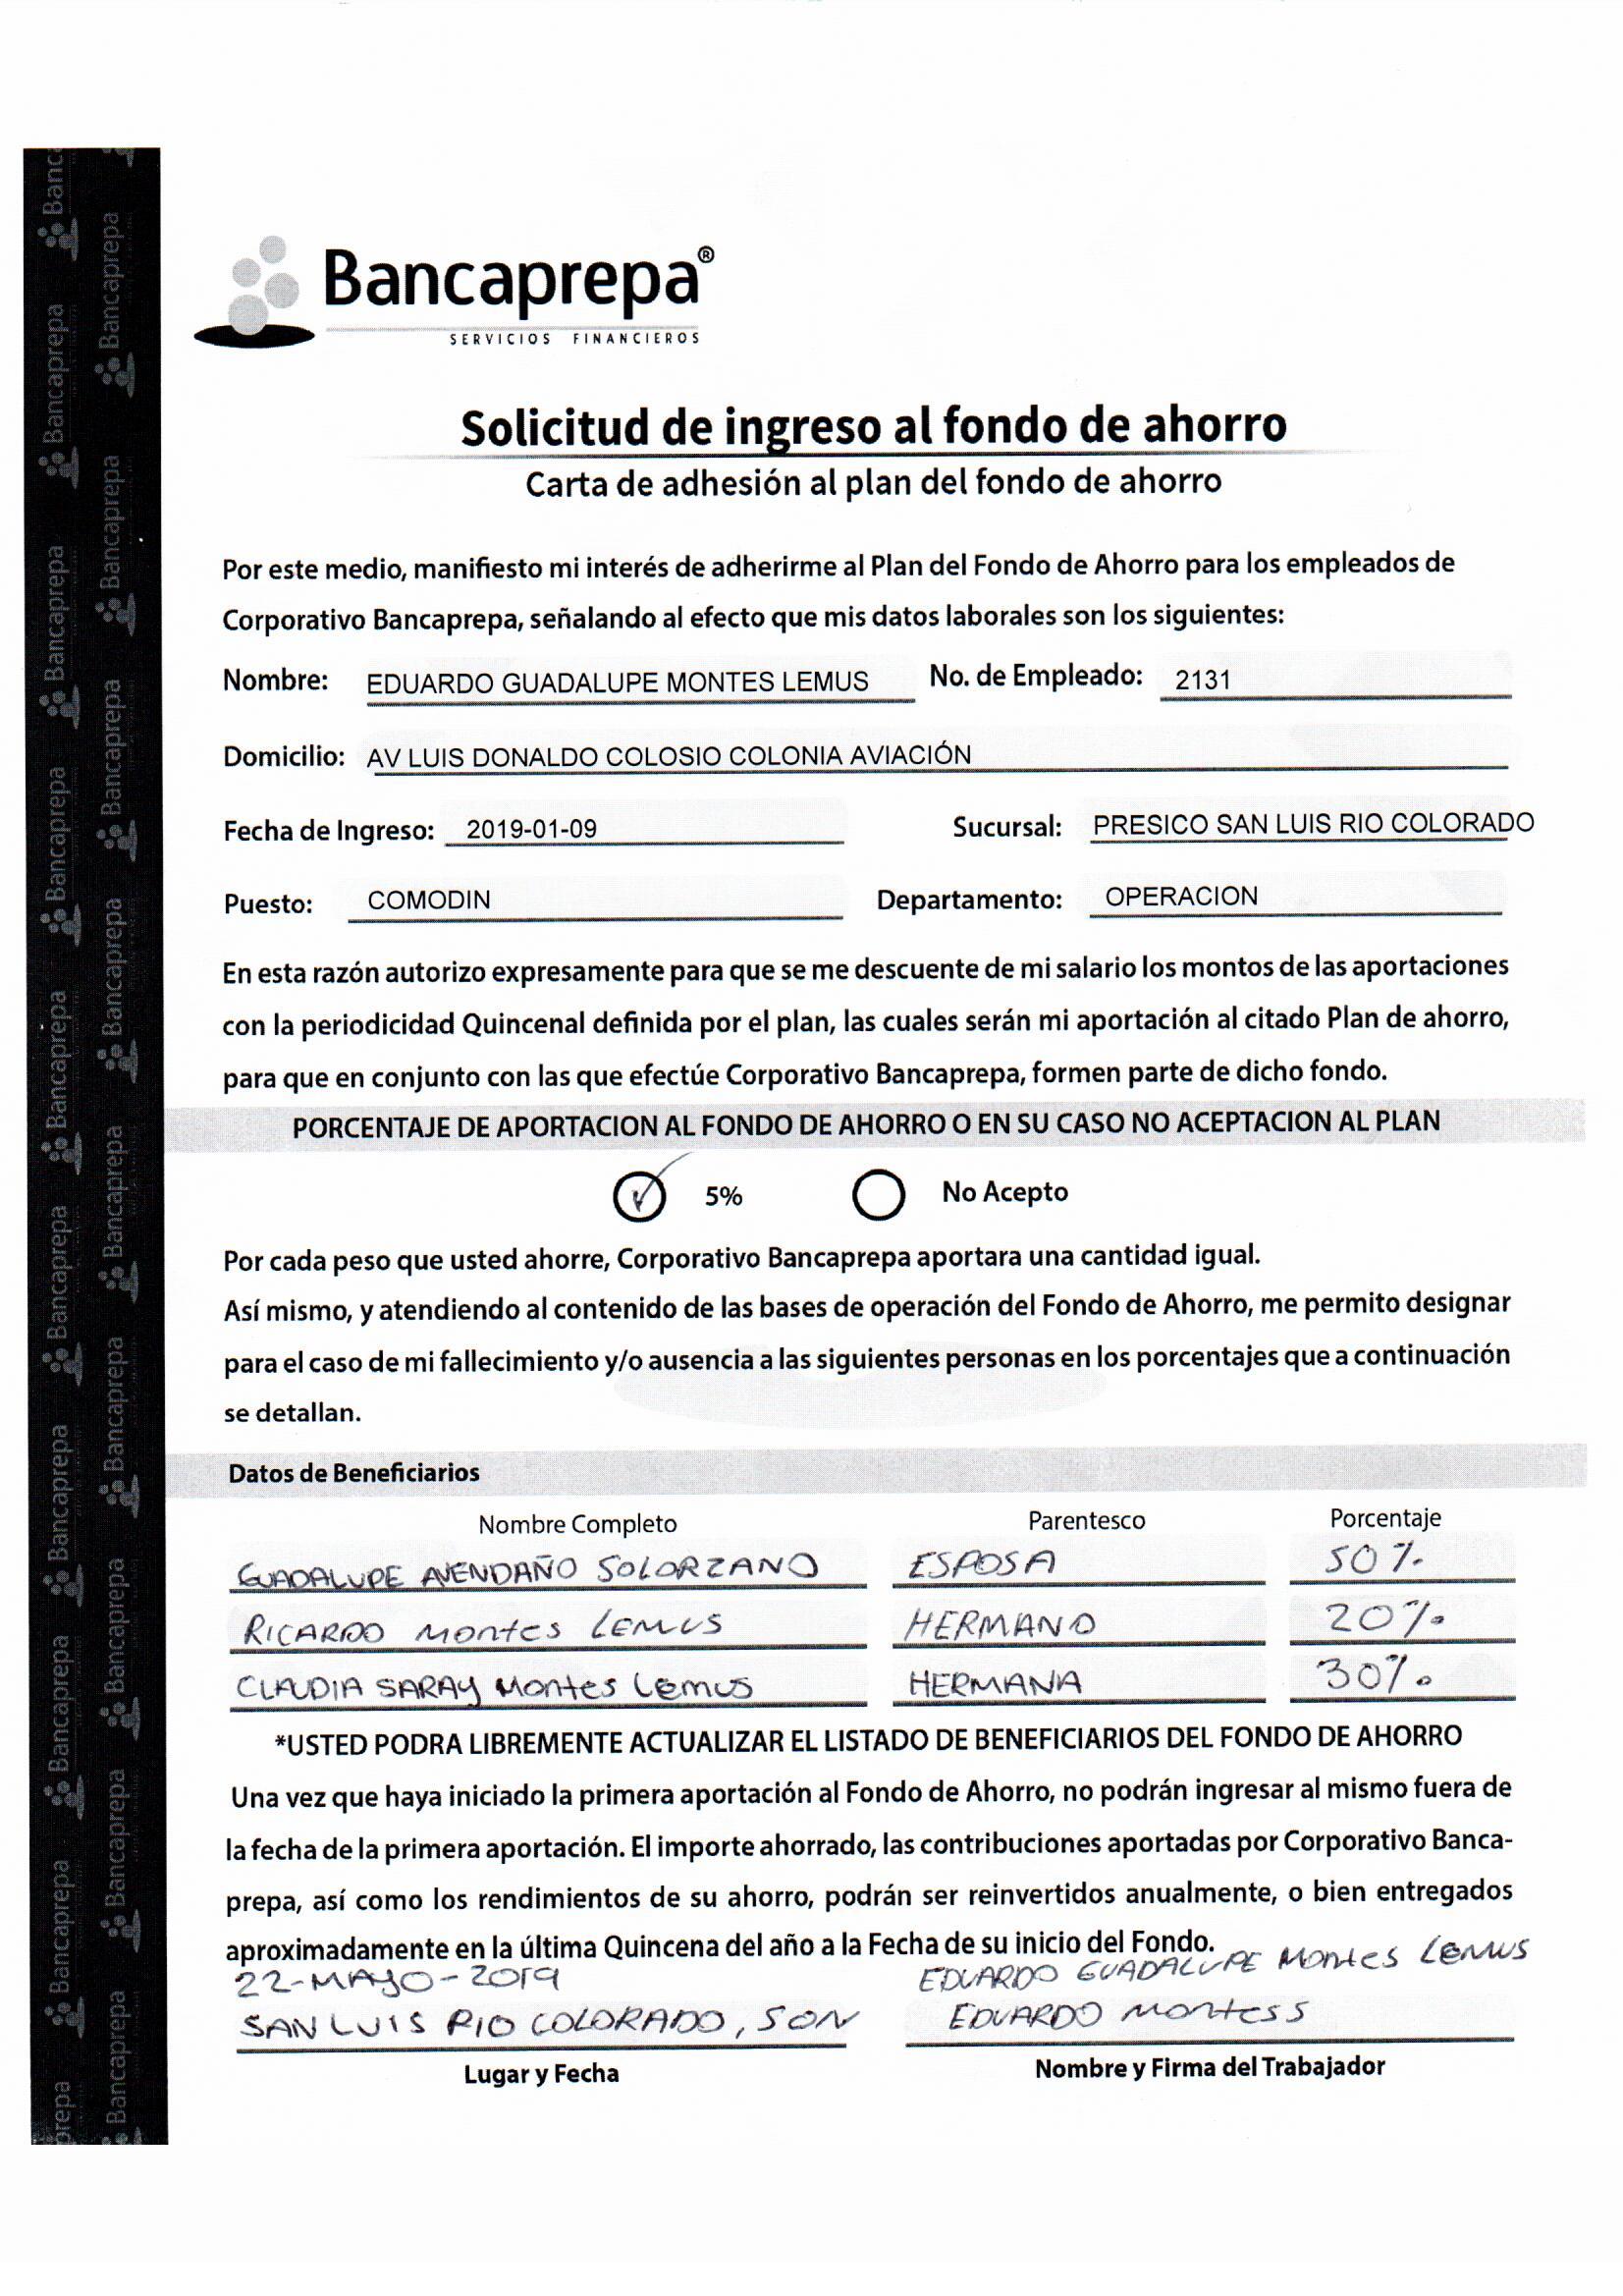 Bancaprepa®
SERVICIOS FINANCIEROS
Solicitud de ingreso al fondo de ahorro
Carta de adhesión al plan del fondo de ahorro
Por este medio, manifiesto mi interés de adherirme al Plan del Fondo de Ahorro para los empleados de
Corporativo Bancaprepa, señalando al efecto que mis datos laborales son los siguientes:
Nombre: EDUARDO GUADALUPE MONTES LEMUS No. de Empleado: 2131
Domicilio: AV LUIS DONALDO COLOSIO COLONIA AVIACIÓN
Fecha de Ingreso: 2019-01-09 Sucursal: PRESICO SAN LUIS RIO COLORADO
Puesto: COMODIN Departamento: OPERACION
En esta razón autorizo expresamente para que se me descuente de mi salario los montos de las aportaciones
con la periodicidad Quincenal definida por el plan, las cuales serán mi aportación al citado Plan de ahorro,
para que en conjunto con las que efectúe Corporativo Bancaprepa, formen parte de dicho fondo.
PORCENTAJE DE APORTACION AL FONDO DE AHORRO O EN SU CASO NO ACEPTACION AL PLAN
5% No Acepto
Por cada peso que usted ahorre, Corporativo Bancaprepa aportara una cantidad igual.
Así mismo, y atendiendo al contenido de las bases de operación del Fondo de Ahorro, me permito designar
para el caso de mi fallecimiento y/o ausencia a las siguientes personas en los porcentajes que a continuación
se detallan.
Datos de Beneficiarios
Nombre Completo Parentesco Porcentaje
GUADALUPE AVENDAÑO SOLORZANO ESPOSA 50%
RICARDO Montes LEMUS HERMANO 20%
CLAUDIA SARAY Montes Lemus HERMANA 30%
*USTED PODRA LIBREMENTE ACTUALIZAR EL LISTADO DE BENEFICIARIOS DEL FONDO DE AHORRO
Una vez que haya iniciado la primera aportación al Fondo de Ahorro, no podrán ingresar al mismo fuera de
la fecha de la primera aportación. El importe ahorrado, las contribuciones aportadas por Corporativo Banca-
prepa, así como los rendimientos de su ahorro, podrán ser reinvertidos anualmente, o bien entregados
aproximadamente en la última Quincena del año a la Fecha de su inicio del Fondo.
22-MAYO-2019 EDUARDO GUADALUPE Montes LEMUS
SAN LUIS RIO COLORADO, SON EDUARDO Montess
Lugar y Fecha Nombre y Firma del Trabajador